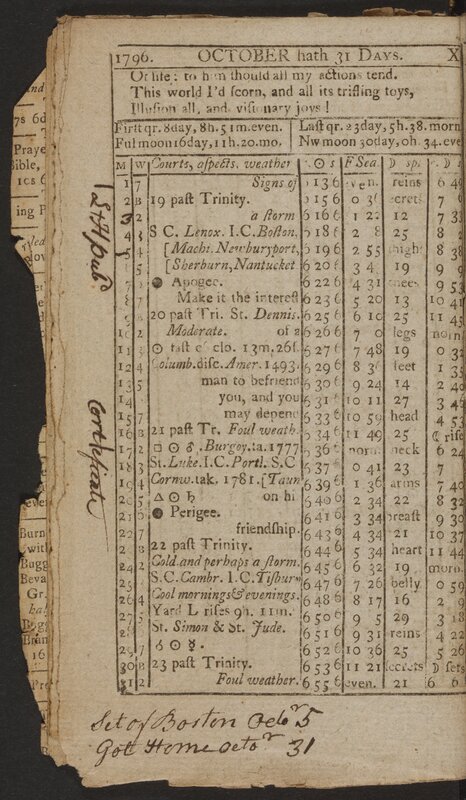 1796. OCTOBER hath 31 Days. X
Of life: to him should all my actions tend.
This world I'd scorn, and all its trifling toys,
Illusion all, and visionary joys!
First qr. 8day, 8h. 51m. even.
Ful moon 16day, 11h. 20. mo.
Last qr. 23day, 5h. 38. morn
Nw moon 30day, 0h. 34. eve
M W Courts, aspects, weather r. ☉ s F Sea. D sp. r. D s
1 7 Signs of 5 13 6 even. reins 6 49
2 B 19 past Trinity. 5 15 6 0 secrets 7
3 2 a storm 6 16 6 1 22 12 7 33
4 3 S C. Lenox. I.C. Boston. 5 18 6 2 8 25 8
5 4 [Machi. Newburyport, 6 19 6 2 55 thighs 8 38
6 5 [Sherburn, Nantucket 6 20 6 3 4 19 9
7 6 Apogee. 6 22 6 4 31 knees 9 53
8 7 Make it the interest 6 23 6 5 20 13 10 41
9 B 20 past Tri. St. Dennis. 6 25 6 6 10 25 11 45
10 2 Moderate. of a 6 26 6 7 0 legs morn
11 3 ☉ fast of clo. 13m. 26s. 6 27 6 7 48 19 0 32
12 4 Columb. disc. Amer. 1493. 6 29 6 8 36 feet 1 35
13 5 man to befriend 6 30 6 9 24 14 2 40
14 6 you, and you 6 31 6 10 11 27 3 46
15 7 may depend 6 33 6 10 59 head 4 53
16 B 21 past Tr. Foul weath. 6 34 6 11 49 25 rise
17 2 □ ☉ ♂. Burgoy. ta. 1777 6 36 morn. neck 6 24
18 3 St. Luke. I.C. Portl. S.C 6 37 0 41 23 7
19 4 Cornw. tak. 1781. [Taun 6 39 6 1 36 arms 7 40
20 5 △ ☉ ♄ on his 6 40 6 2 34 22 8 32
21 6 Perigee. 6 41 6 3 34 breast 9 30
22 7 friendship. 6 43 6 4 34 21 10 37
23 B 22 past Trinity. 6 44 6 5 34 heart 11 44
24 2 Cold and perhaps a storm. 6 45 6 6 32 19 morn.
25 3 S.C. Cambr. I.C. Tisbury 6 47 6 7 26 belly 0 59
26 4 Cool mornings & evenings. 6 48 6 8 17 16 2
27 5 Yard L rises 9h. 11m. 6 50 6 9 5 29 3 18
28 6 St. Simon & St. Jude. 6 51 6 9 31 reins 4 22
29 7 ☌ ☉ ☿. 6 52 6 10 36 25 5 26
30 B 23 past Trinity. 6 53 6 11 21 secrets D sets
31 2 Foul weather. 6 55 6 even. 21 6 6
Certificat
Set of Boston Octor 5
Got Home octor 31